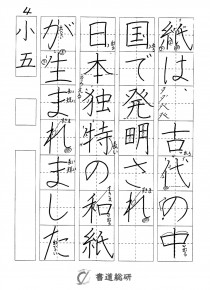 紙は、古代の中
国で発明され
日本独特の和紙
が生まれました
4
小五
書道総研